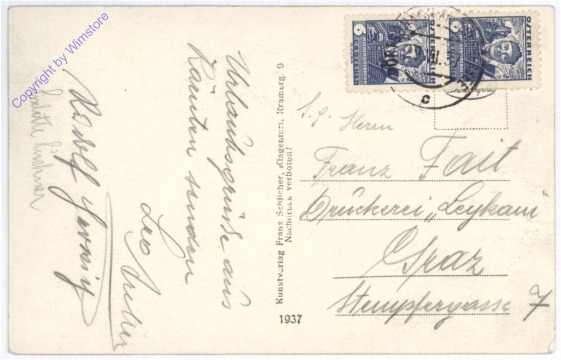 Copyright by Wimstore
Urlaubsgrüsse aus
Kärnten senden
Leo
Rudolf
Kunstverlag Franz Schilcher, Klagenfurt, Kramerg. 9
Nachdruck verboten!
1937
6 GROSCHEN
ÖSTERREICH
6
ÖSTERREICH
c
Herrn
Franz Fait
Druckerei „Leykam"
Graz
Stempfergasse 7